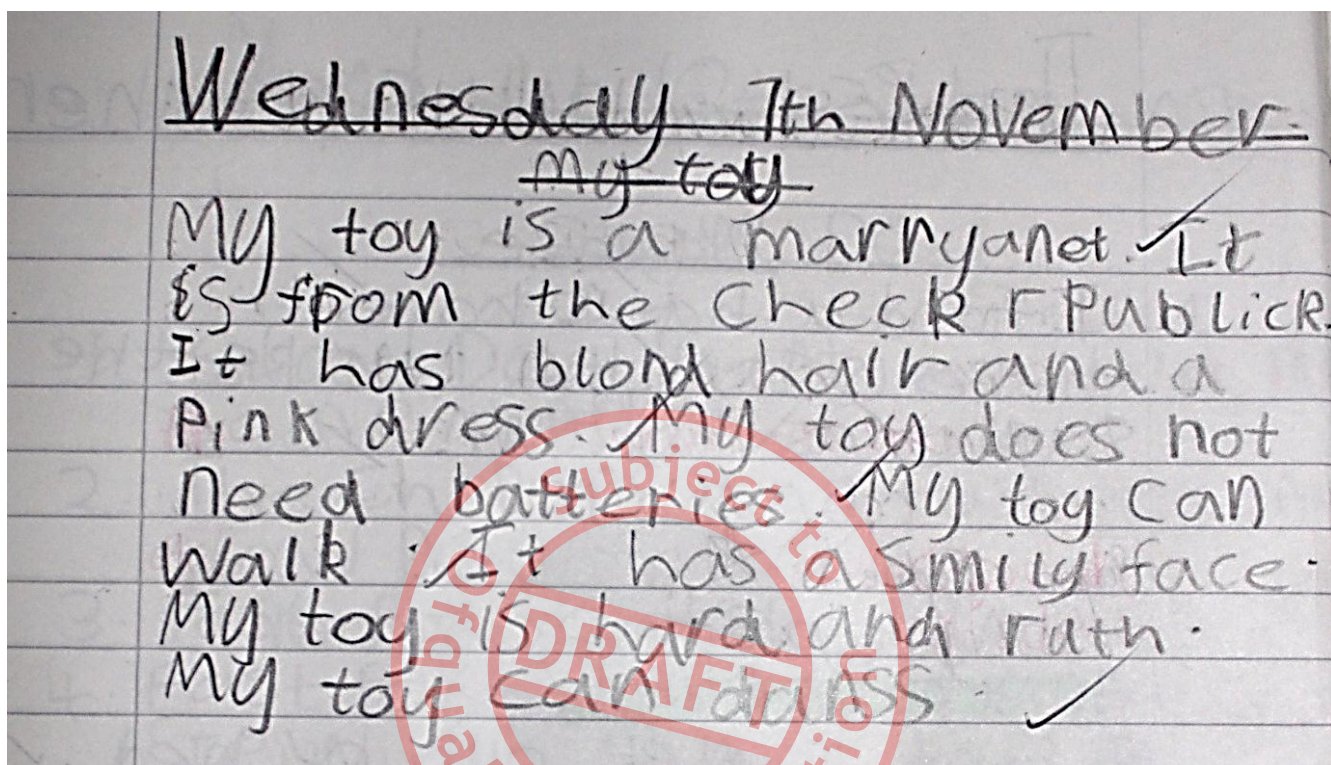 Wednesday 7th November.
My toy
My toy is a marryanet. It
is from the Check rPublick.
It has blond hair and a
Pink dress. My toy does not
need batteries. My toy can
walk. It has a Smily face.
My toy is hard and ruth.
My toy can danss.
Subject to
DRAFT